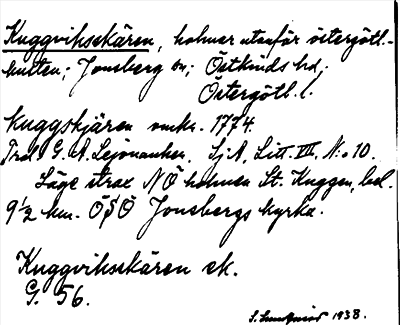 Kuggviksskären, holmar utanför östergötl.-
kusten; Jonsberg sn; Östkinds hd;
Östergötl. l.
Kuggskjären omkr. 1774.
G. A. Lejonanker. SjA, Litt. VIII, N:o 10.
Läge strax NÖ holmen St. Kuggen, bel.
9 1/2 km. ÖSÖ Jonsbergs kyrka.
Kuggviksskären ek.
G. 56.
1938.